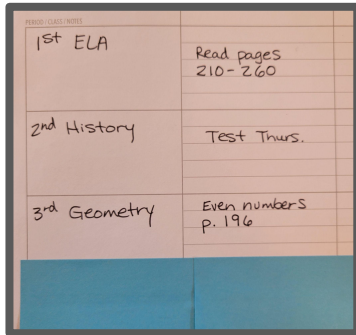 PERIOD / CLASS / NOTES
1st ELA
Read pages
210-260
2nd History
Test Thurs.
3rd Geometry
Even numbers
p. 196